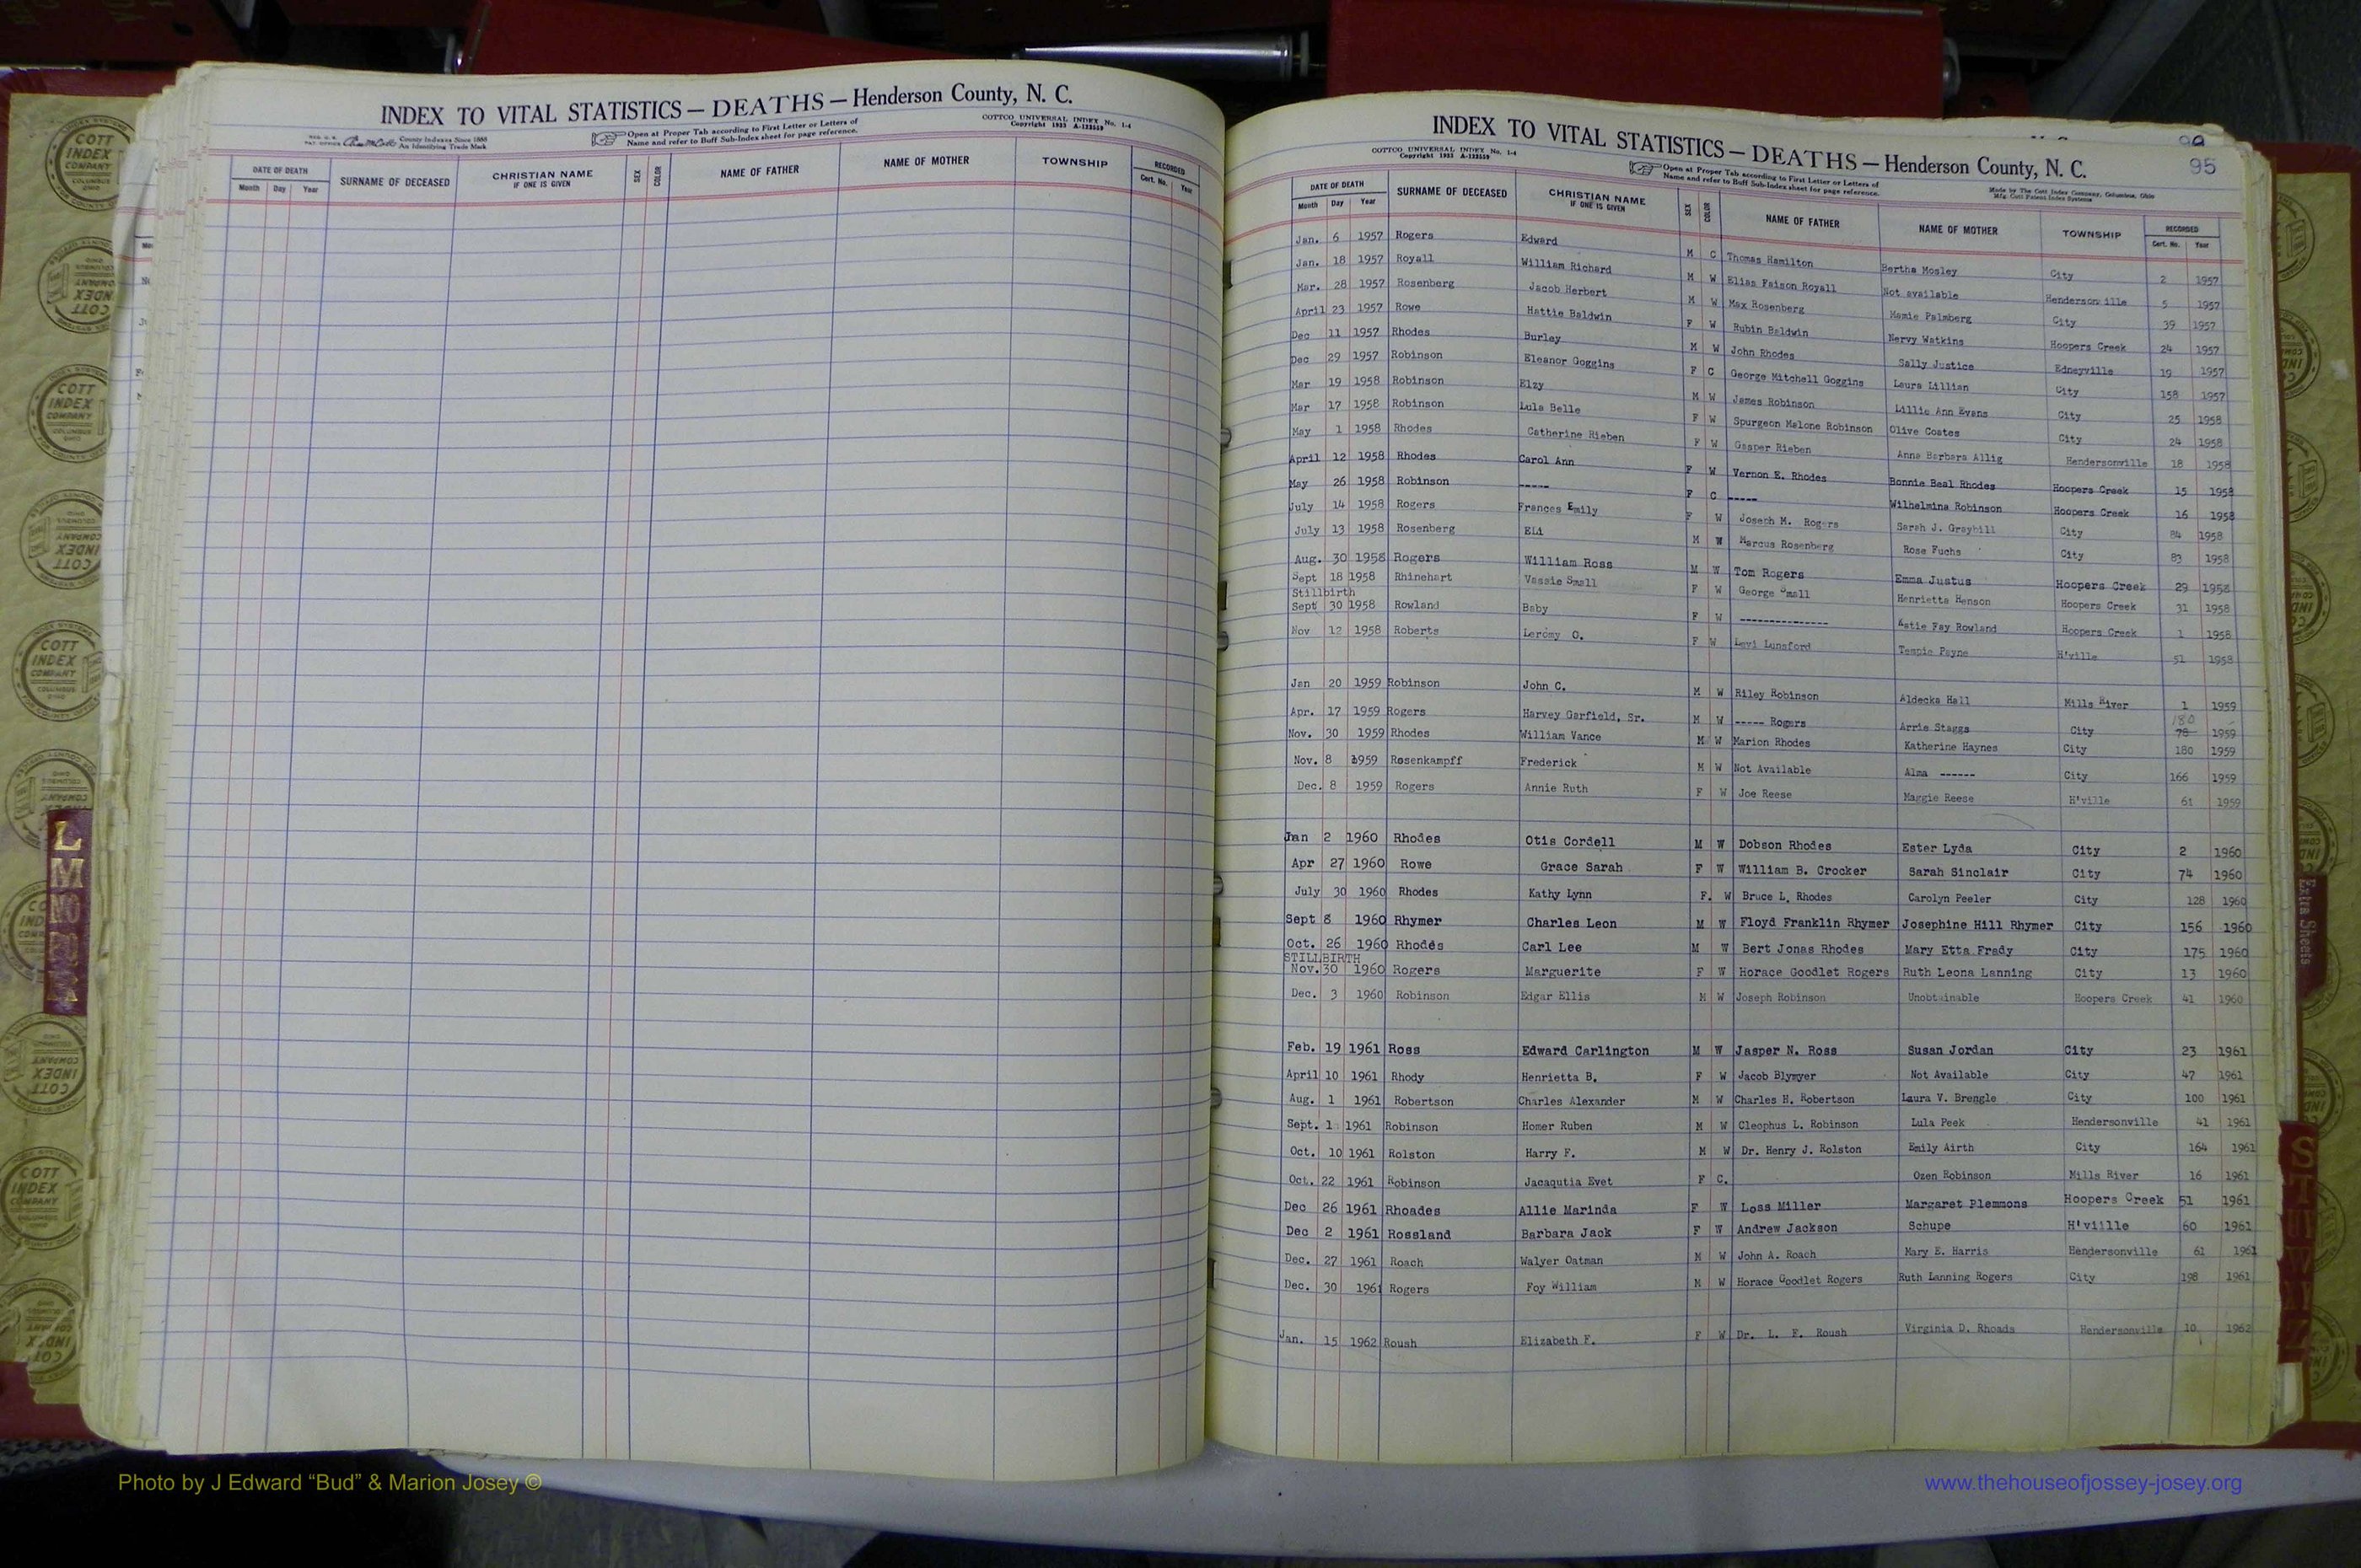 INDEX TO VITAL STATISTICS — DEATHS — Henderson County, N. C.
County Indexes Since 1888
An Identifying Trade Mark
Open at Proper Tab according to First Letter or Letters of
Name and refer to Buff Sub-Index sheet for page reference.
COTTCO UNIVERSAL INDEX No. 1-4
DATE OF DEATH SURNAME OF DECEASED CHRISTIAN NAME IF ONE IS GIVEN SEX COLOR NAME OF FATHER NAME OF MOTHER TOWNSHIP RECORDED
Month Day Year Cert. No. Year
95
INDEX TO VITAL STATISTICS — DEATHS — Henderson County, N. C.
COTTCO UNIVERSAL INDEX No. 1-4
Open at Proper Tab according to First Letter or Letters of
Name and refer to Buff Sub-Index sheet for page reference.
Made by The Cott Index Company, Columbus, Ohio
DATE OF DEATH SURNAME OF DECEASED CHRISTIAN NAME IF ONE IS GIVEN SEX COLOR NAME OF FATHER NAME OF MOTHER TOWNSHIP RECORDED
Month Day Year Cert. No. Year
Jan. 6 1957 Rogers Edward M C Thomas Hamilton Bertha Mosley City 2 1957
Jan. 18 1957 Royall William Richard M W Elias Faison Royall Not available Henderson ille 5 1957
Mar. 28 1957 Rosenberg Jacob Herbert M W Max Rosenberg Mamie Palmberg City 39 1957
April 23 1957 Rowe Hattie Baldwin F W Rubin Baldwin Nervy Watkins Hoopers Creek 24 1957
Dec 11 1957 Rhodes Burley M W John Rhodes Sally Justice Edneyville 19 1957
Dec 29 1957 Robinson Eleanor Goggins F C George Mitchell Goggins Laura Lillian City 158 1957
Mar 19 1958 Robinson Elzy M W James Robinson Lillie Ann Evans City 25 1958
Mar 17 1958 Robinson Lula Belle F W Spurgeon Malone Robinson Olive Coates City 24 1958
May 1 1958 Rhodes Catherine Rieben F W Gasper Rieben Anna Barbara Allig Hendersonville 18 1958
April 12 1958 Rhodes Carol Ann F W Vernon E. Rhodes Bonnie Beal Rhodes Hoopers Creek 15 1958
May 26 1958 Robinson ----- F C ----- Wilhelmina Robinson Hoopers Creek 16 1958
July 14 1958 Rogers Frances Emily F W Joseph M. Rogers Sarah J. Graybill City 84 1958
July 13 1958 Rosenberg Eli M W Marcus Rosenberg Rose Fuchs City 83 1958
Aug. 30 1958 Rogers William Ross M W Tom Rogers Emma Justus Hoopers Creek 29 1958
Sept 18 1958 Rhinehart Vassie Small F W George Small Henrietta Henson Hoopers Creek 31 1958
Stillbirth
Sept 30 1958 Rowland Baby F W -------------- Katie Fay Rowland Hoopers Creek 1 1958
Nov 12 1958 Roberts Leromy O. F W Levi Lunsford Tempie Payne H'ville 51 1958
Jan 20 1959 Robinson John C. M W Riley Robinson Aldecka Hall Mills River 1 1959
180
Apr. 17 1959 Rogers Harvey Garfield, Sr. M W ----- Rogers Arrie Staggs City 78 1959
Nov. 30 1959 Rhodes William Vance M W Marion Rhodes Katherine Haynes City 180 1959
Nov. 8 1959 Rosenkampff Frederick M W Not Available Alma ------ City 166 1959
Dec. 8 1959 Rogers Annie Ruth F W Joe Reese Maggie Reese H'ville 61 1959
Jan 2 1960 Rhodes Otis Cordell M W Dobson Rhodes Ester Lyda City 2 1960
Apr 27 1960 Rowe Grace Sarah F W William B. Crocker Sarah Sinclair City 74 1960
July 30 1960 Rhodes Kathy Lynn F. W Bruce L. Rhodes Carolyn Peeler City 128 1960
Sept 8 1960 Rhymer Charles Leon M W Floyd Franklin Rhymer Josephine Hill Rhymer City 156 1960
Oct. 26 1960 Rhodes Carl Lee M W Bert Jonas Rhodes Mary Etta Frady City 175 1960
STILLBIRTH
Nov. 30 1960 Rogers Marguerite F W Horace Goodlet Rogers Ruth Leona Lanning City 13 1960
Dec. 3 1960 Robinson Edgar Ellis M W Joseph Robinson Unobtainable Hoopers Creek 41 1960
Feb. 19 1961 Ross Edward Carlington M W Jasper N. Ross Susan Jordan City 23 1961
April 10 1961 Rhody Henrietta B. F W Jacob Blymyer Not Available City 47 1961
Aug. 1 1961 Robertson Charles Alexander M W Charles H. Robertson Laura V. Brengle City 100 1961
Sept. 1 1961 Robinson Homer Ruben M W Cleophus L. Robinson Lula Peek Hendersonville 41 1961
Oct. 10 1961 Rolston Harry F. M W Dr. Henry J. Rolston Emily Airth City 164 1961
Oct. 22 1961 Robinson Jacaqutia Evet F C. Ozen Robinson Mills River 16 1961
Dec 26 1961 Rhoades Allie Marinda F W Loss Miller Margaret Plemmons Hoopers Creek 51 1961
Dec 2 1961 Rossland Barbara Jack F W Andrew Jackson Schupe H'viille 60 1961
Dec. 27 1961 Roach Walyer Oatman M W John A. Roach Mary E. Harris Hendersonville 61 1961
Dec. 30 1961 Rogers Foy William M W Horace Goodlet Rogers Ruth Lanning Rogers City 198 1961
Jan. 15 1962 Roush Elizabeth F. F W Dr. L. F. Roush Virginia D. Rhoads Hendersonville 10 1962
COTT INDEX COMPANY
L
M
Extra Sheets
S
T
Photo by J Edward “Bud” & Marion Josey ©
www.thehouseofjossey-josey.org